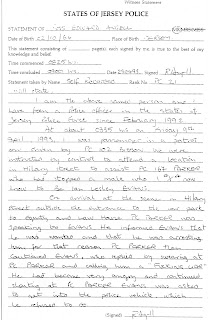 Witness Statement
STATES OF JERSEY POLICE
STATEMENT OF
Date of Birth Place of Birth JERSEY
This statement consisting of page(s) each signed by me, is true to the best of my
knowledge and belief.
Time commenced 0825hrs
Time concluded Signed
Statement taken by Self Recorded Rank No PC 21
Will state
I am the above named person and I
have been a Police officer in the States of
Jersey Police Force since February 1992.
At about hrs on Friday 02
April 1993 I was passenger in a patrol
car driven by PC We were
instructed by control to attend a location
in Hilary Street to assist PC 164 PARKER
who had stopped a male who I now
know to be Ian Lesley Evans.
On arrival at the scene in Hilary
Street outside the entrance to the car park
to equity and new House PC PARKER was
speaking to EVANS. He informed EVANS that
he was wanted and that he was arresting
him for that reason PC PARKER then
cautioned Evans who replied by swearing at
PC PARKER and calling him a
He had become very angry and continued
shouting at PC PARKER. Evans was asked
to get into the police vehicle which
he refused to do
Signed